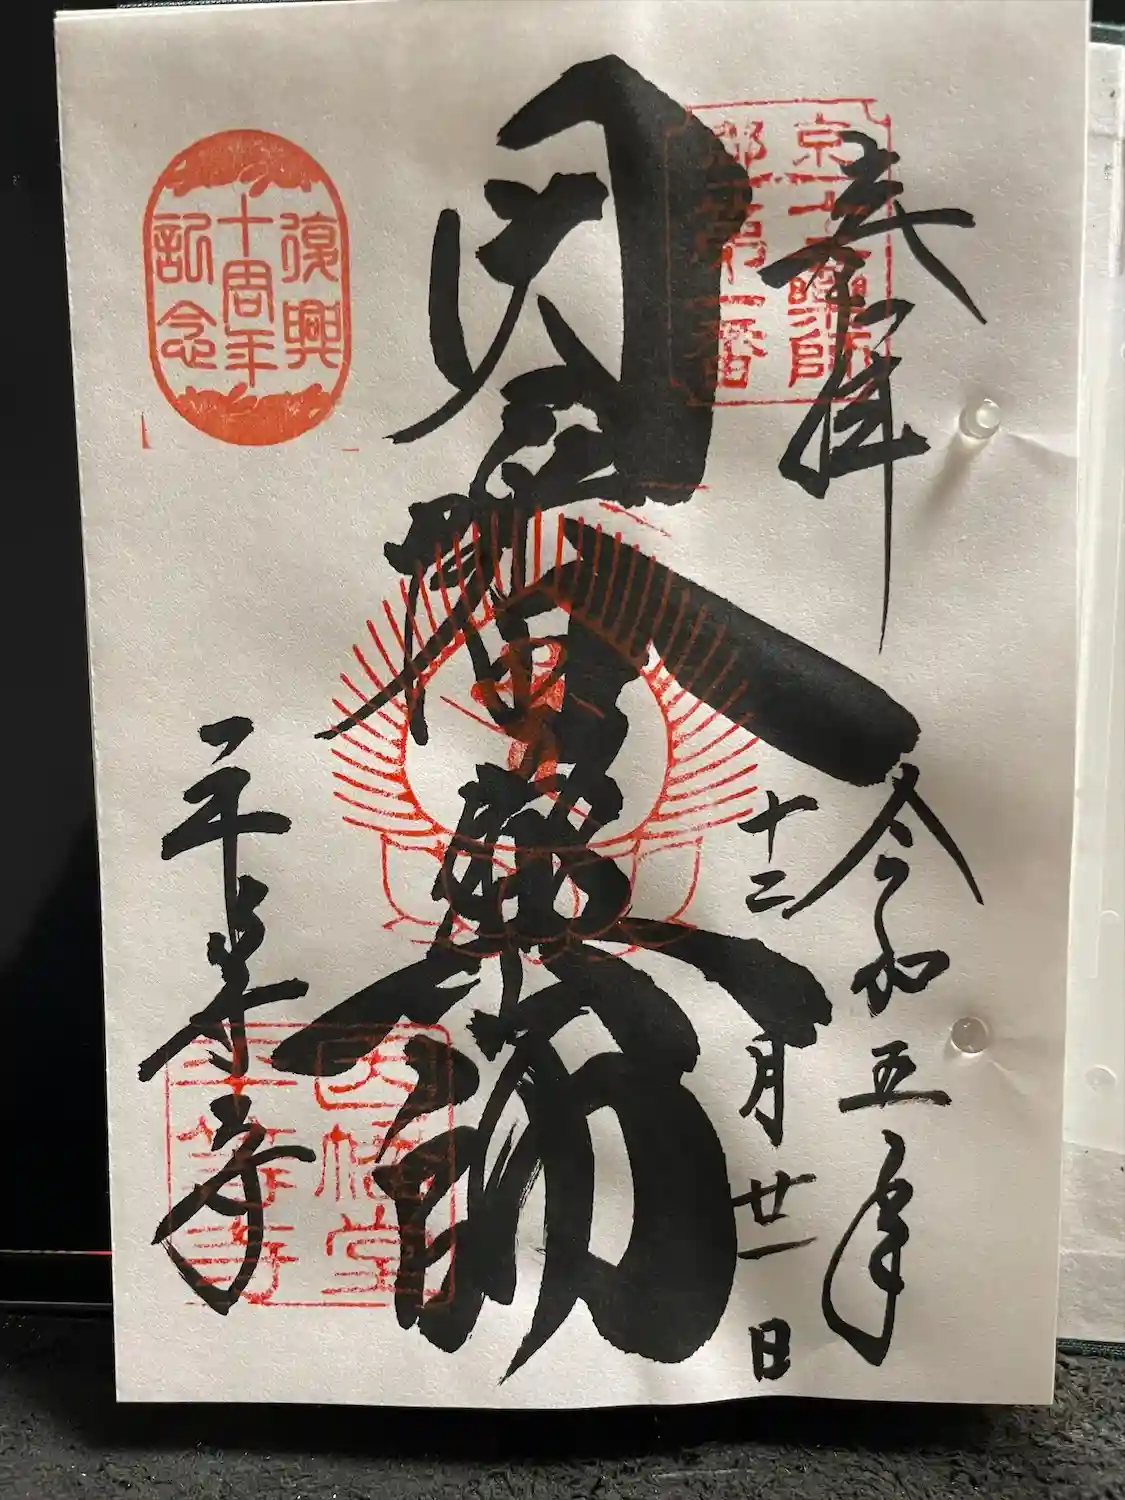 奉拝
京都
十二藥師
第一番
令和五年
十二月廿一日
因幡薬師
復興
十周年
記念
平等寺
因幡堂
平等寺